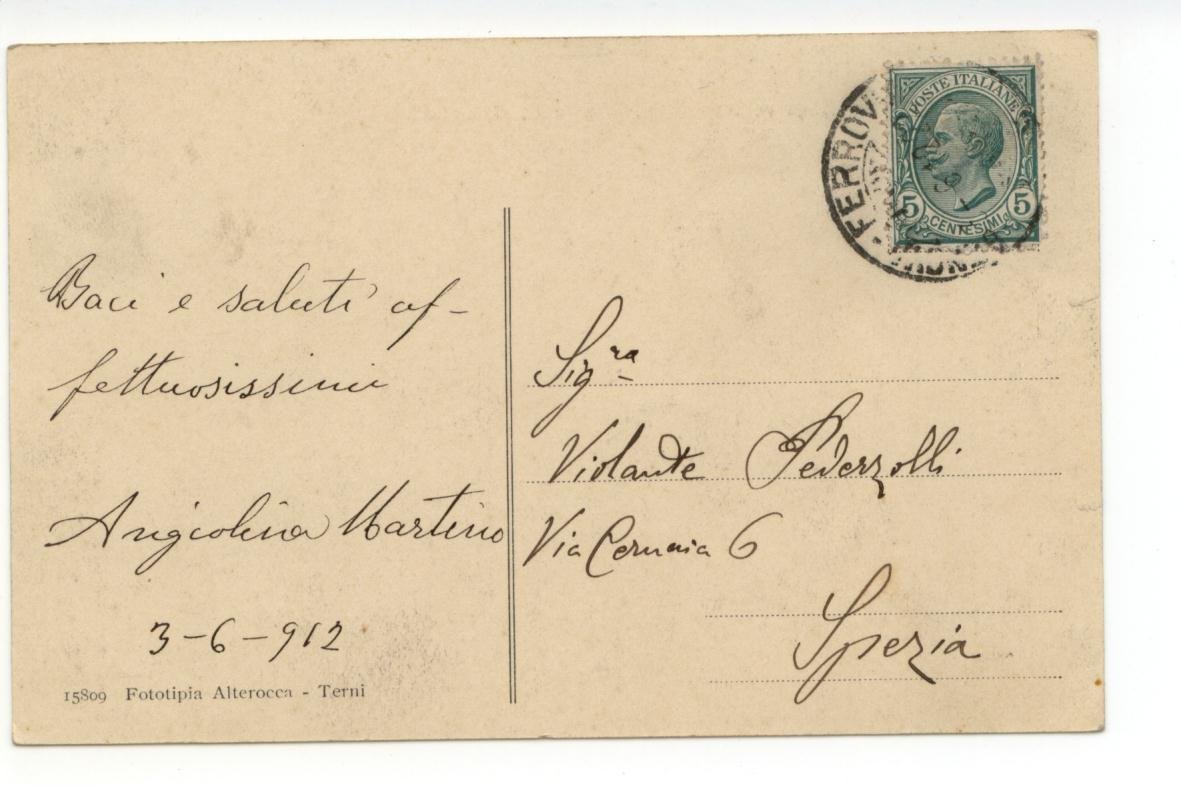 Baci e saluti af-
fettuosissimi
Angiolina Martino
3-6-912
15809 Fototipia Alterocca - Terni
POSTE ITALIANE
5 CENTESIMI 5
FERROV
Sig.ra
Violante Pederzolli
Via Cernaia 6
Spezia